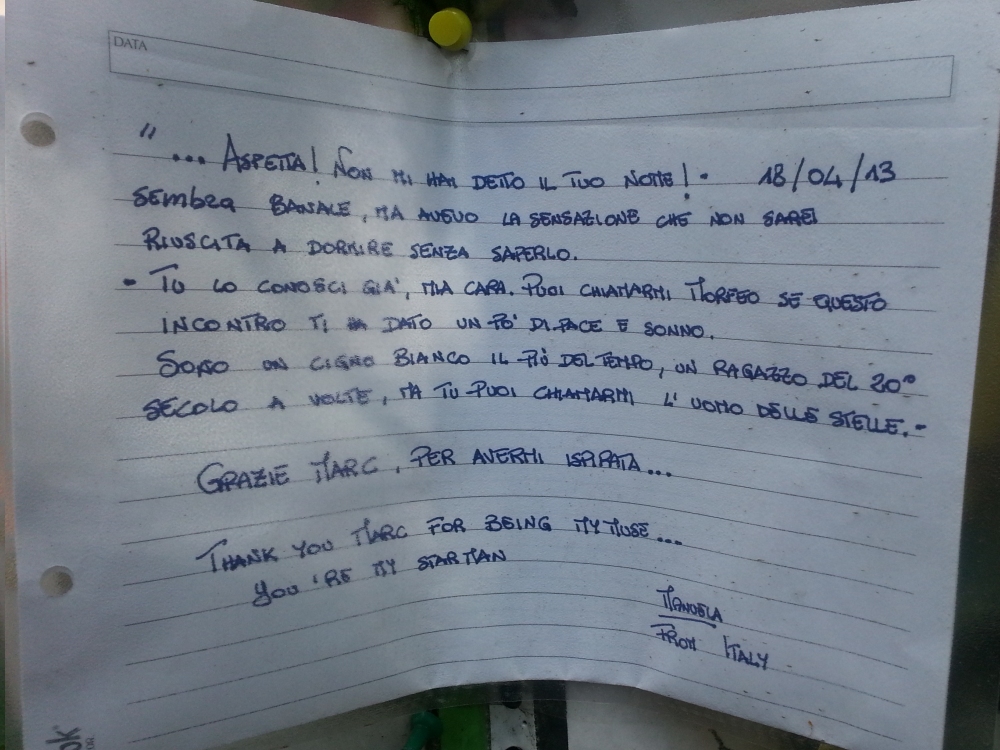 DATA
"... ASPETTA! NON MI HAI DETTO IL TUO NOME! - 18/04/13
SEMBRA BANALE, MA AVEVO LA SENSAZIONE CHE NON SAREI
RIUSCITA A DORMIRE SENZA SAPERLO.
- TU LO CONOSCI GIA', MIA CARA. PUOI CHIAMARMI MORFEO SE QUESTO
INCONTRO TI HA DATO UN PO' DI PACE E SONNO.
SONO UN CIGNO BIANCO IL PIÙ DEL TEMPO, UN RAGAZZO DEL 20°
SECOLO A VOLTE, MA TU PUOI CHIAMARMI L'UOMO DELLE STELLE.-
GRAZIE MARC, PER AVERMI ISPIRATA...
THANK YOU MARC FOR BEING MY MUSE...
YOU'RE MY STARMAN
MANUELA
FROM ITALY